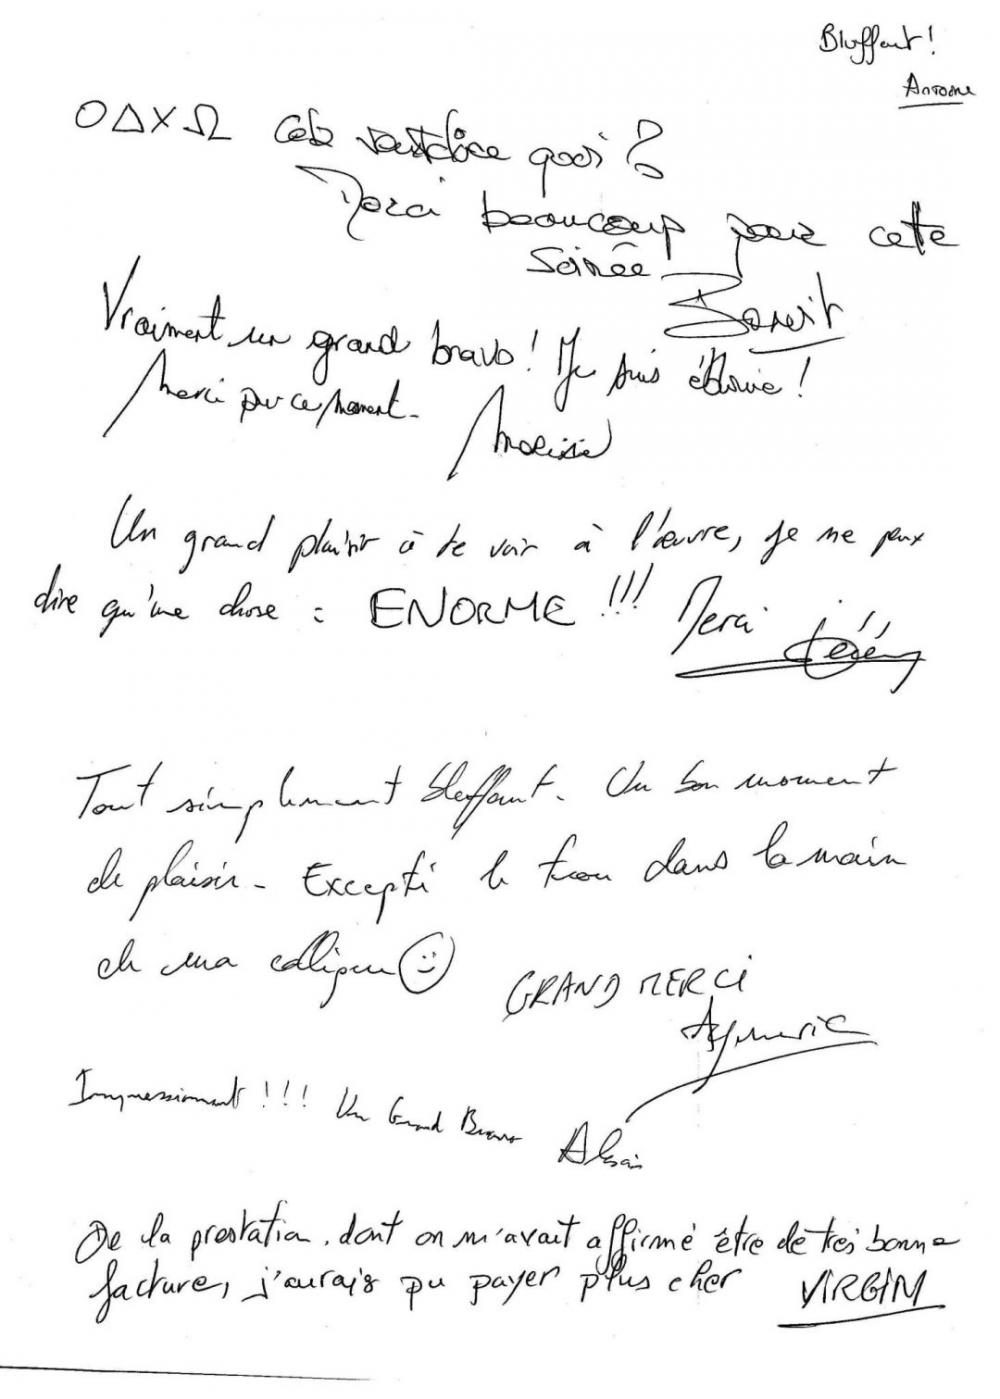 Bluffant !
Antoine
O Δ X Ω Cela veut dire quoi ?
Merci beaucoup pour cette
soirée
Benoit
Vraiment un grand bravo ! Je suis éblouie !
Merci pour ce moment.
Un grand plaisir à te voir à l'œuvre, je ne peux
dire qu'une chose : ENORME !!! Merci Jérémy
Tout simplement bluffant. Un bon moment
de plaisir - Excepté le trou dans la main
de ma collègue ☺
GRAND MERCI
Aymeric
Impressionnant !!! Un Grand Bravo Alexis
De la prestation, dont on m'avait affirmé être de très bonne
facture, j'aurais pu payer plus cher VIRGIM